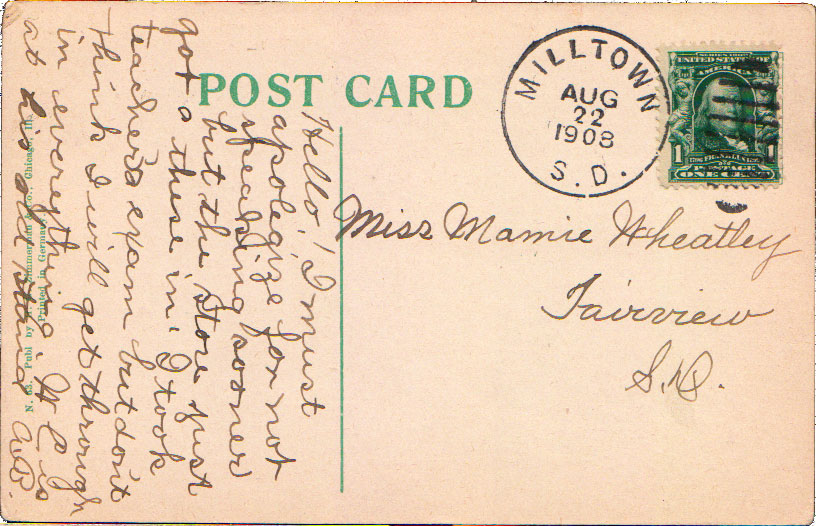 POST CARD
MILLTOWN
AUG
22
1908
S. D.
SERIES 1902
UNITED STATES OF
AMERICA
1 FRANKLIN 1
POSTAGE
ONE CENT
Miss Mamie Wheatley
Fairview
S.D.
Hello! I must
apolegize for not
speaking sooner
but the store just
got o these in. I took
teachers exam but don't
think I will get through
in evereything. W C is
at his old stand A.B.
N. 63. Publ by Zimmerman & Co., Chicago, Ill.
Printed in Germany.